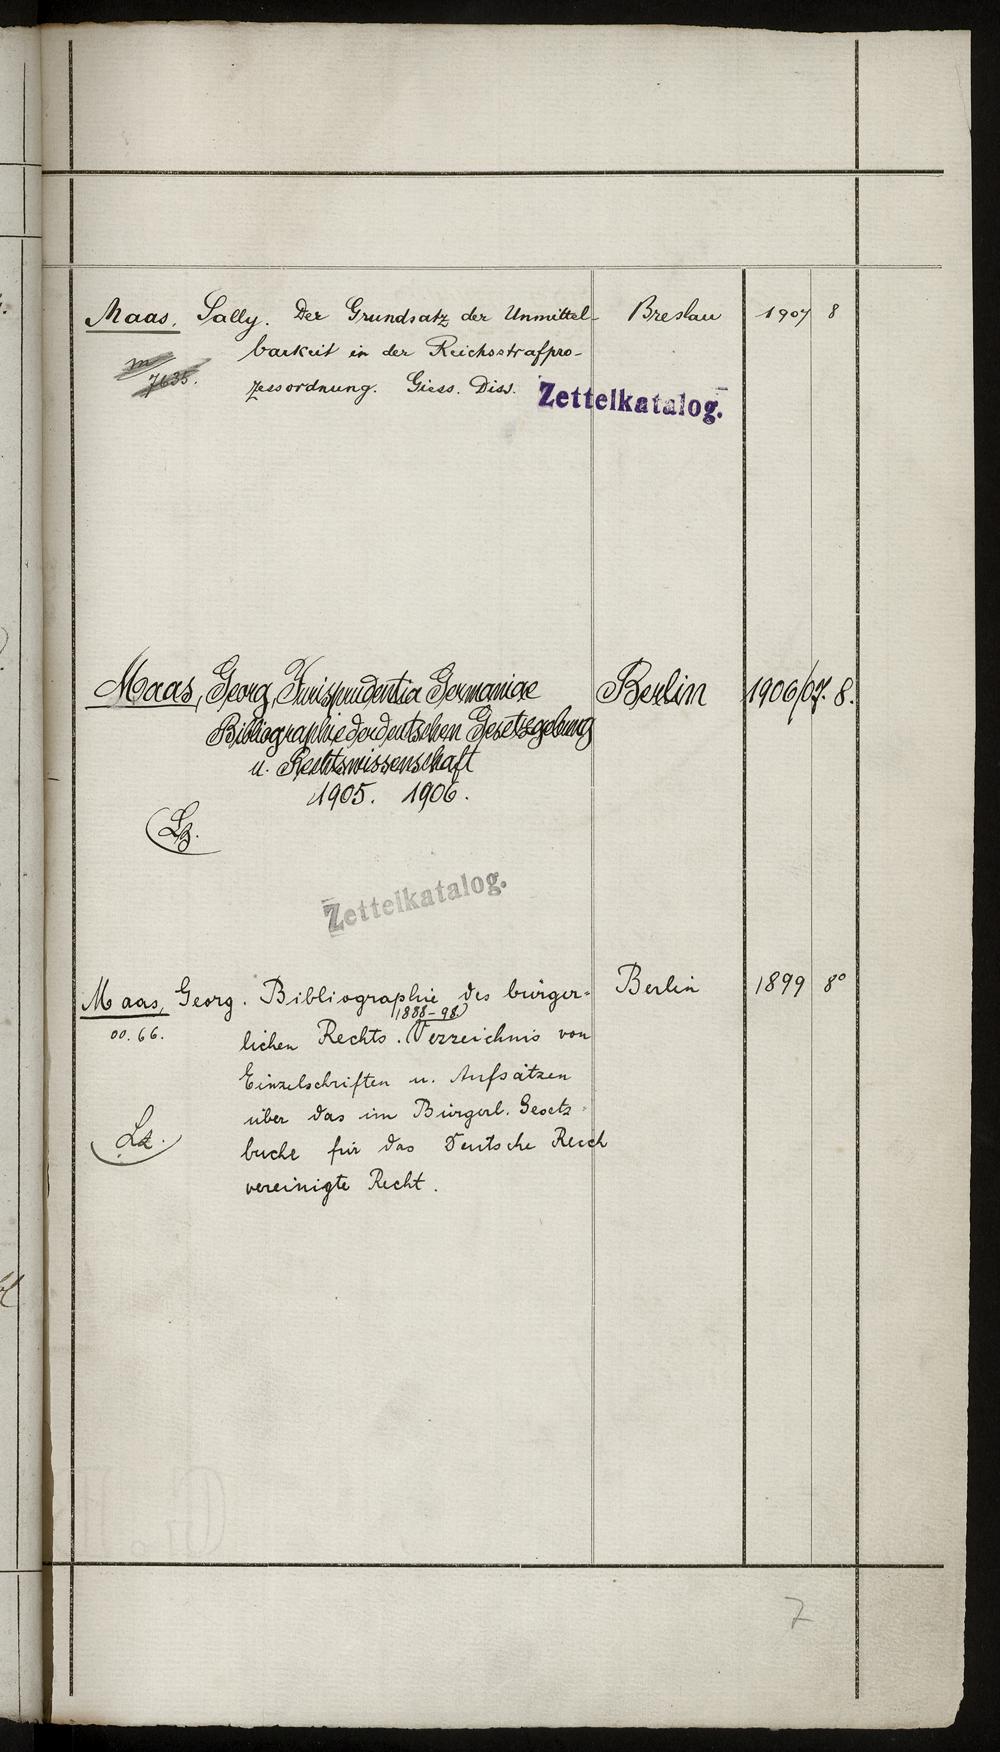 Maas, Sally. Der Grundsatz der Unmittel- Breslau 1907 8
barkeit in der Reichsstrafpro-
m
7635.
zessordnung. Giess. Diss.
Zettelkatalog.
Maas, Georg, Jurisprudentia Germaniae Berlin 1906/07. 8.
Bibliographie der deutschen Gesetzgebung
u. Rechtswissenschaft
1905. 1906.
Lz.
Zettelkatalog.
Maas, Georg. Bibliographie des bürger= Berlin 1899 8°
1888-98)
00. 66.
lichen Rechts. (Verzeichnis von
Einzelschriften u. Aufsätzen
über das im Bürgerl. Gesetz=
buche für das Deutsche Reich
Lz.
vereinigte Recht.
7